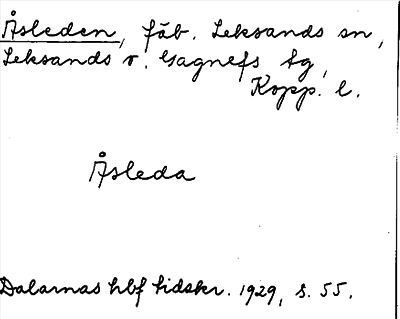 Åsleden, fäb. Leksands sn,
Leksands o. Gagnefs tg,
Kopp. l.
Åsleda
Dalarnas hbf tidskr. 1929, s. 55.